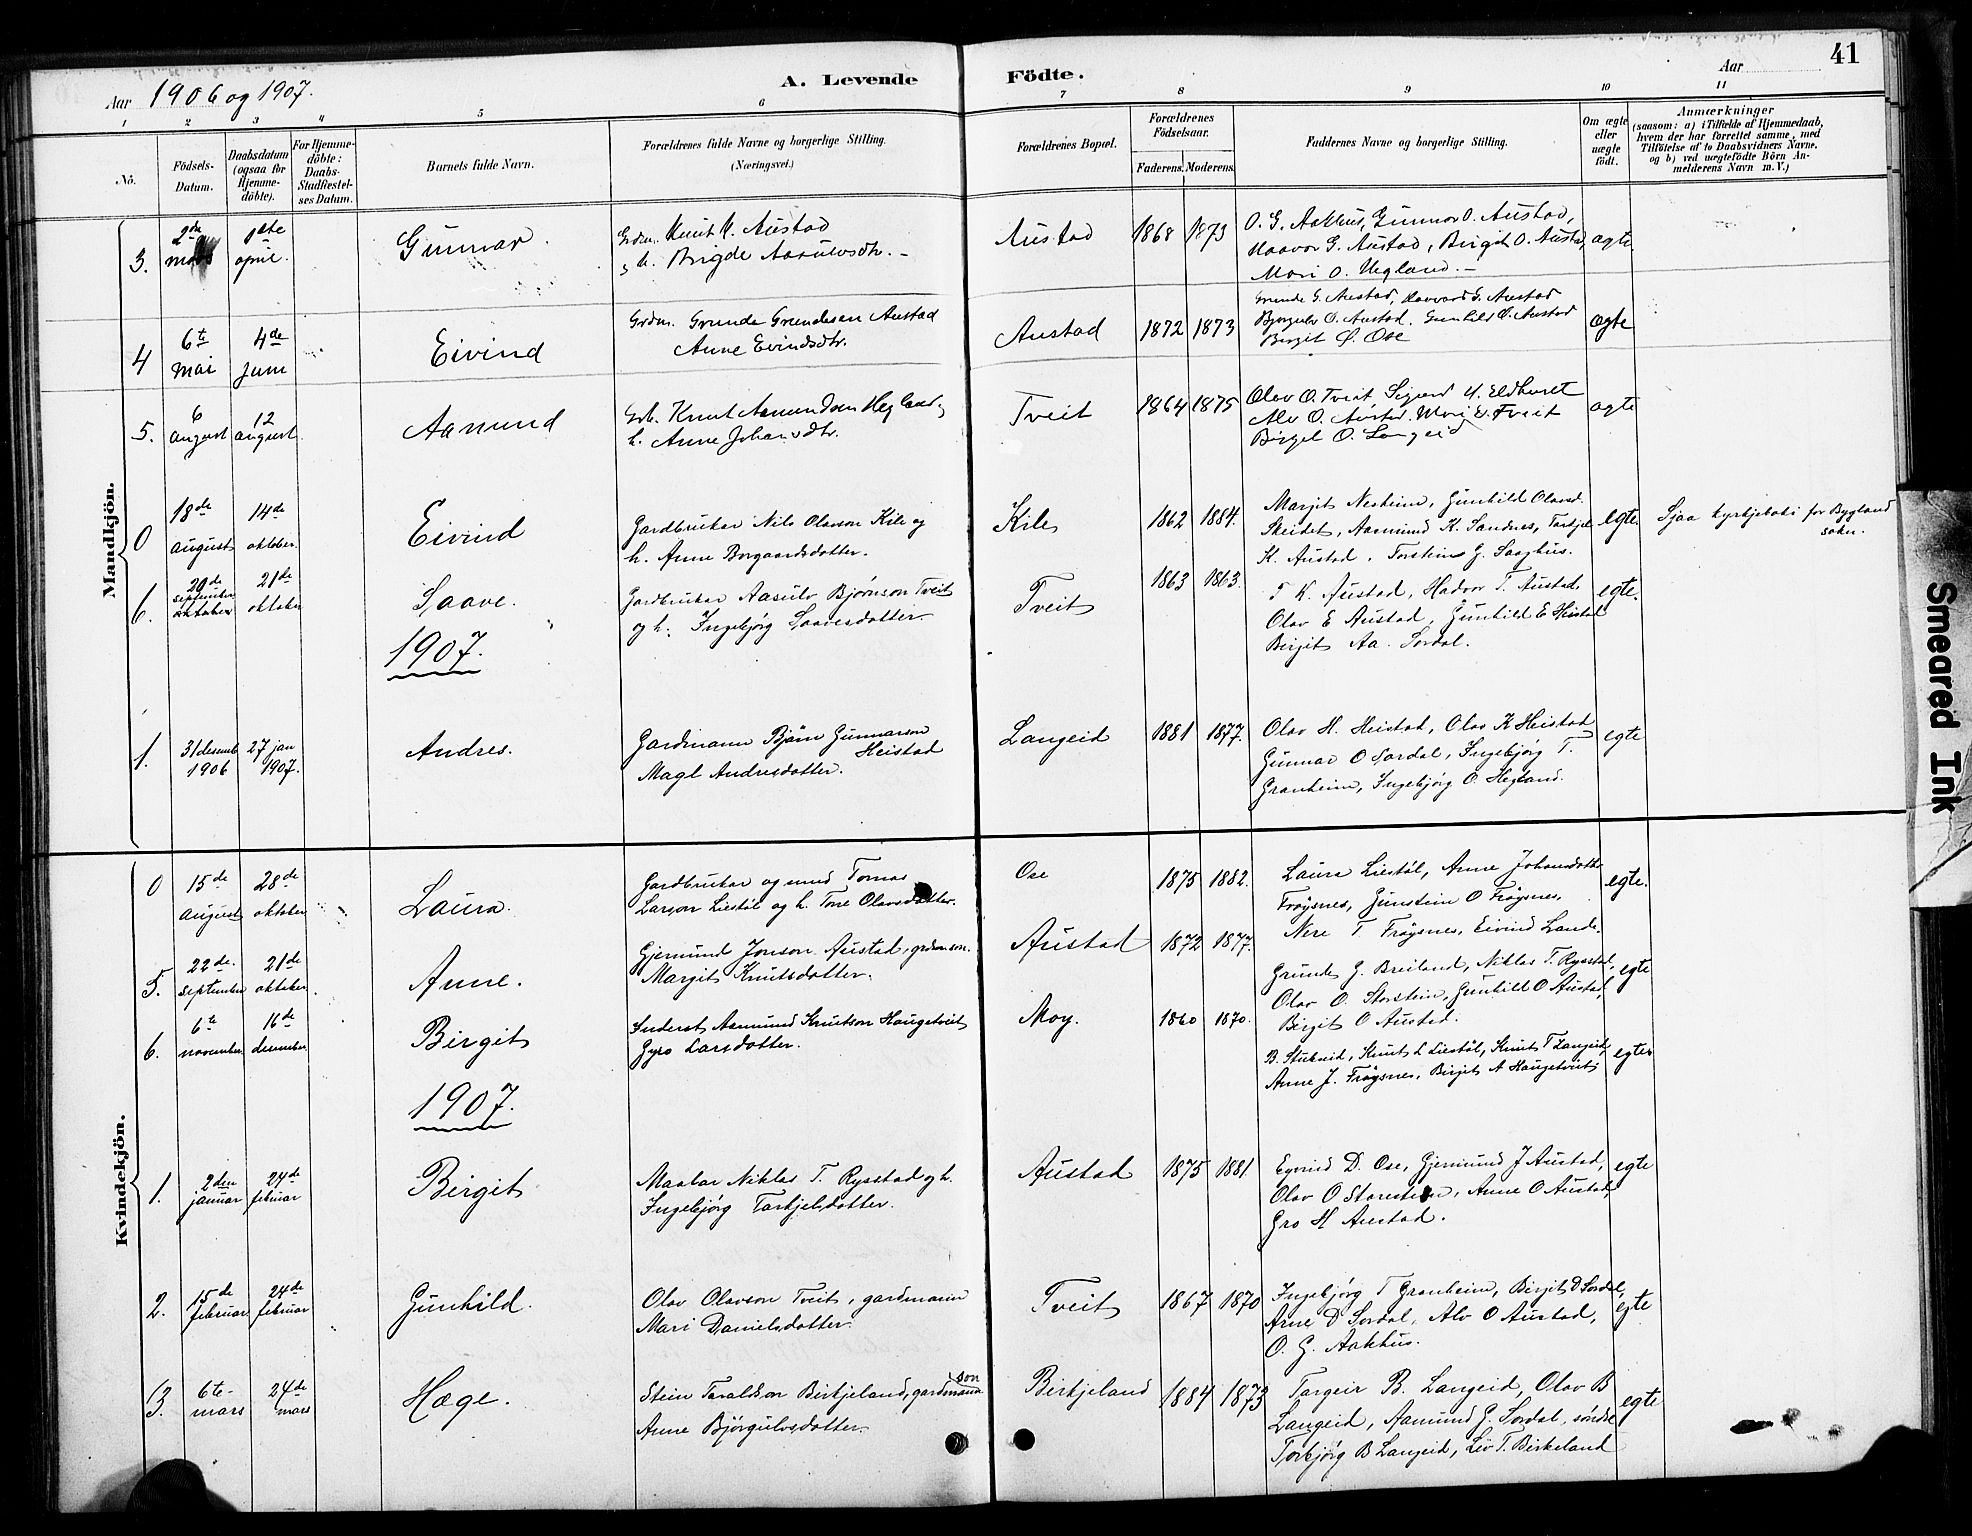 41
Aar 1906 og 1907.
A. Levende Födte.
Aar
1 2 3 4 5 6 7 8 9 10 11
No.
Födsels-Datum.
Daabsdatum (ogsaa for Hjemmedöbte).
For Hjemmedöbte: Daabs-Stadfæstelses Datum.
Barnets fulde Navn.
Forældrenes fulde Navne og borgerlige Stilling. (Næringsvei.)
Forældrenes Bopæl.
Forældrenes Födselsaar.
Faderens. Moderens.
Faddernes Navne og borgerlige Stilling.
Om ægte eller uægte født.
Anmærkninger
(saasom: a) i Tilfælde af Hjemmedaab,
hvem der har forrettet samme, med
Tilföielse af to Daabsvidners Navne,
og b) ved uægtefødte Börn An-
melderens Navn m. V.)
Mandkjön.
3. 2de mars 1ste april. Gunnar.
Grdm. Knut K. Austad
h. Brigde Aasulvsdtr. -
Austad 1868 1873
O. G. Aakhus, Gunnar O. Austad,
Haavor G. Austad, Birgit O. Austad,
Mari O. Hegland. -
ægte
4 6te mai 4de juni Eivind
Grdm. Grunde Grundesen Austad
Anne Evindsdtr.
Austad 1872 1873
Grunde G. Austad, Haavard G. Austad
Bjorgulv O. Austad. Gunhild O. Austad
Birgit O. Ose
ægte
5. 6 august 12 august Aamund
Grb. Knut Aamundsen Hegland,
h. Anne Johansdtr.
Tveit 1864 1875
Olav O. Tveit, Sigurd H. Eldhuset
Alv O. Austad. Mari E. Tveit
Birgit O. Langeid
ægte
0 18de august 14de oktober. Eivind
Gardbrukar Nils Olavson Kile og
h. Anne Borgaardsdotter.
Kile 1862 1884.
Margit Nesheim, Gunhild Olavsd.
Skeidet, Aamund K. Sandnes, Tarkjel
K. Austad, Torstein G. Saaghus.
egte.
Sjaa kyrkjeboki for Bygland
sokn.
6. 20de september oktober 21de oktober Saave.
Gardbrukar Aasulv Bjørnson Tveit
og h. Ingebjørg Saavesdotter.
Tveit 1863 1863.
T K. Austad, Hadvor T. Austad,
Olav E Austad, Gunhild E Heistad
Birgit Aa. Sordal.
egte.
1907.
1. 31 desemb 1906 27 jan 1907. Andres.
Gardmann Bjørn Gunnarson
Heistad
Magl Andresdotter.
Langeid 1881 1877.
Olav H. Heistad, Olav K Heistad
Gunnar O Sordal, Ingebjørg T.
Granheim, Ingebjørg O. Hegland.
egte
Kvindekjön.
0 15de august 28de oktober Laura.
Gardbrukar og smed Tomas
Larson Liestøl og h. Tone Olavsdotter.
Ose 1875 1882.
Laura Liestøl, Anne Johansdotter
Frøysnes, Gunstein O Frøysnes,
Nere T Frøysnes, Eivind Lande.
egte.
5. 22de september 21de oktober. Anne.
Gjermund Jonson Austad, grdmson.
Margit Knutsdotter.
Austad 1872 1877.
Grunde G. Breiland, Niklas T. Rysstad,
Olav O. Storstein, Gunhild O Austad,
Birgit O Austad.
egte
6. 6te november 16de desember Birgit
Inderst Aamund Knutson Haugetveit
Gyro Larsdotter.
Moy. 1860 1870.
B. Stukeid, Knut L Liestøl, Knut T Langeid,
Anne J. Frøysnes, Birgit A Haugetveit
egte
1907.
1. 2den januar 24de februar Birgit
Maalar Niklas T. Rysstad og h.
Ingebjørg Tarkjelsdotter.
Austad 1875 1881
Eyvind D. Ose, Gjermund J Austad,
Olav O Storestein, Anne O Austad,
Gro H Austad.
egte
2. 15de februar 24de februar Gunhild.
Olav Olavson Tveit, gardmann
Mari Danielsdotter.
Tveit 1867 1870
Ingebjørg T Granheim, Birgit D Sordal,
Arne D Sordal, Alv O Austad,
O. G. Aakhus.
egte
3. 6te mars 24de mars Hæge.
Stein Taraldson Birkjeland, gardmannson
Anne Bjørgulvsdotter.
Birkjeland 1884 1873
Targeir B. Langeid, Olav B
Langeid, Aamund G. Sordal, søndre
Torbjørg B Langeid, Liv T. Birkeland
egte
Smeared Ink